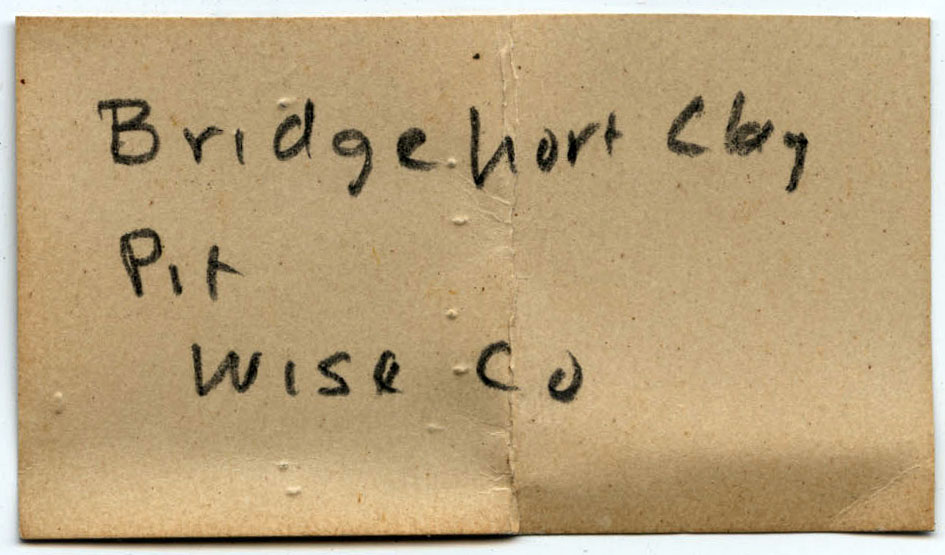 Bridgeport Clay
Pit
Wise Co